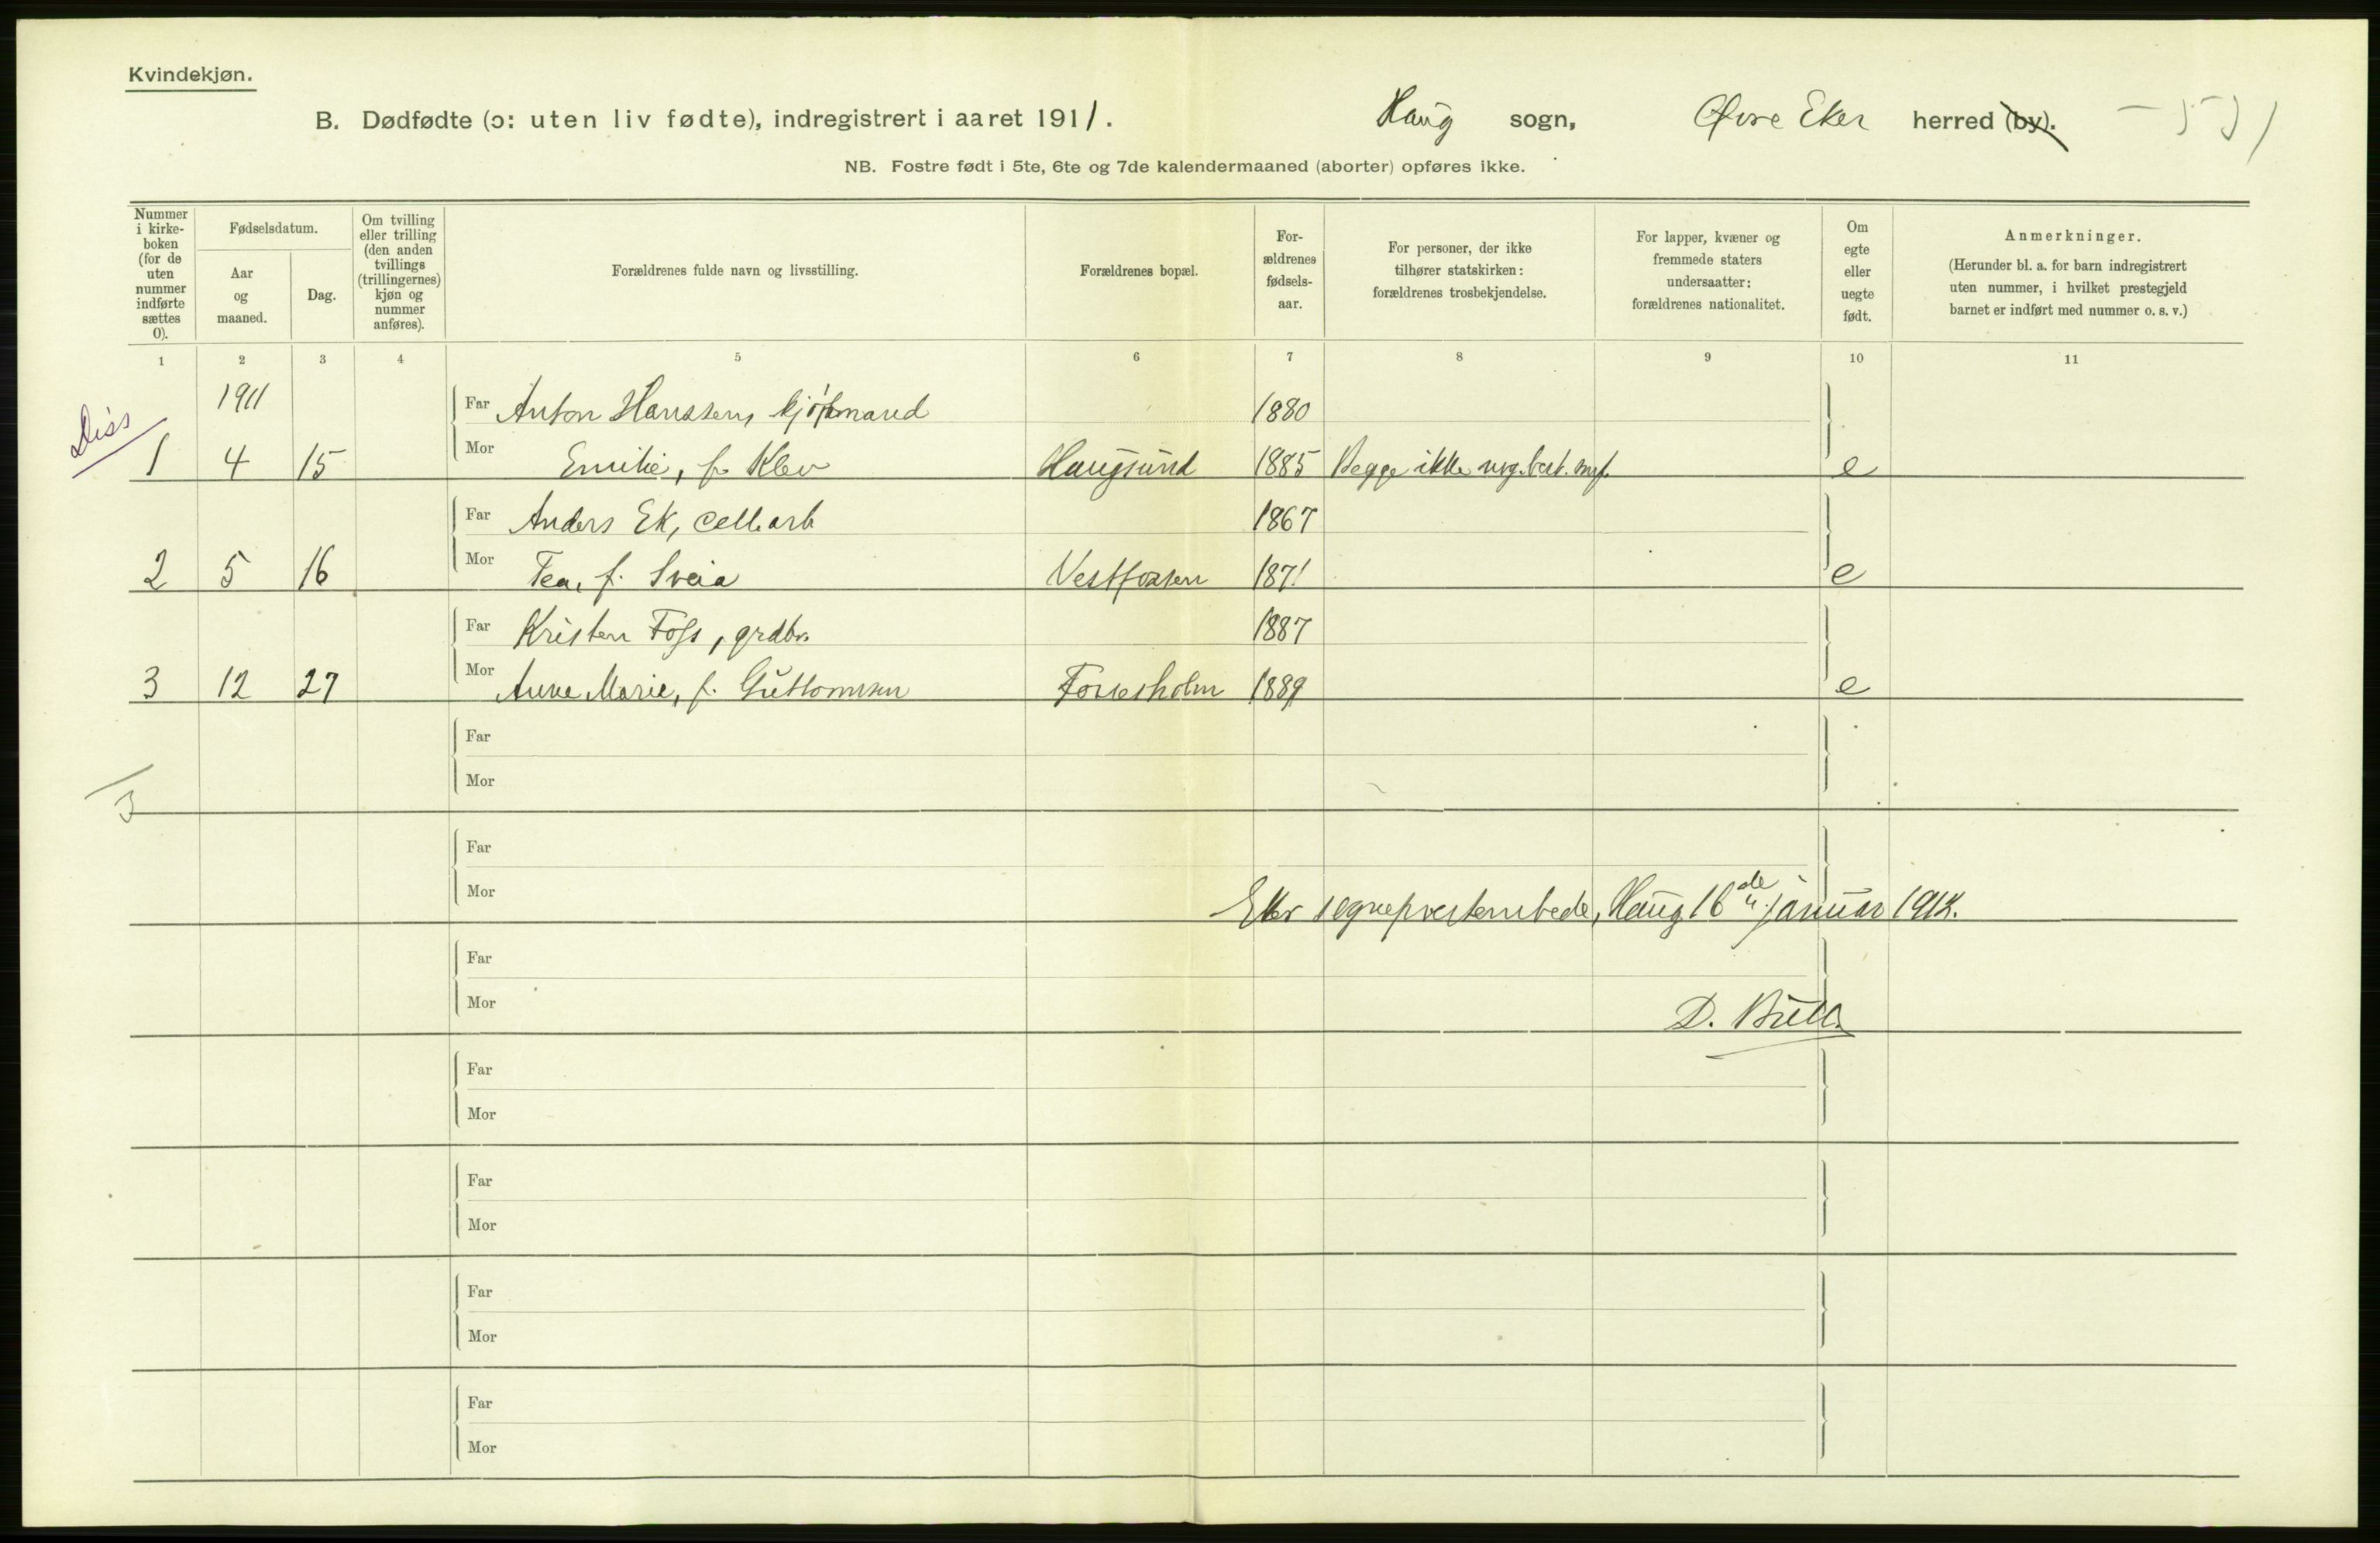 Kvindekjøn.
B. Dødfødte (ɔ: uten liv fødte), indregistrert i aaret 1911. Haug sogn, Øvre Eker herred (by).
NB. Fostre født i 5te, 6te og 7de kalendermaaned (aborter) opføres ikke.
Nummer i kirke-boken (for de uten nummer indførte sættes 0).
Fødselsdatum.
Aar og maaned.
Dag.
Om tvilling eller trilling (den anden tvillings (trillingernes) kjøn og nummer anføres).
Forældrenes fulde navn og livsstilling.
Forældrenes bopæl.
For-ældrenes fødsels-aar.
For personer, der ikke tilhører statskirken: forældrenes trosbekjendelse.
For lapper, kvæner og fremmede staters undersaatter: forældrenes nationalitet.
Om egte eller uegte født.
Anmerkninger.
(Herunder bl. a. for barn indregistrert uten nummer, i hvilket prestegjeld barnet er indført med nummer o. s. v.)
1 2 3 4 5 6 7 8 9 10 11
1911 Far Anton Hanssen, kjøpmand 1880
Diss
1 4 15 Mor Emilie, f. Klev Haugsund 1885 Begge ikke e
Far Anders Ek, cell.arb 1867
2 5 16 Mor Tea, f. Sveia Vestfossen 1871 e
Far Kristen Foss, grdbr. 1887
3 12 27 Mor Anne Marie, f. Guttormsen 1889 e
Far
Mor
3
Far
Mor
Eker sogneprestembede, Haug 16de januar 1912.
Far
Mor
D. Bull
Far
Mor
Far
Mor
Far
Mor
Far
Mor